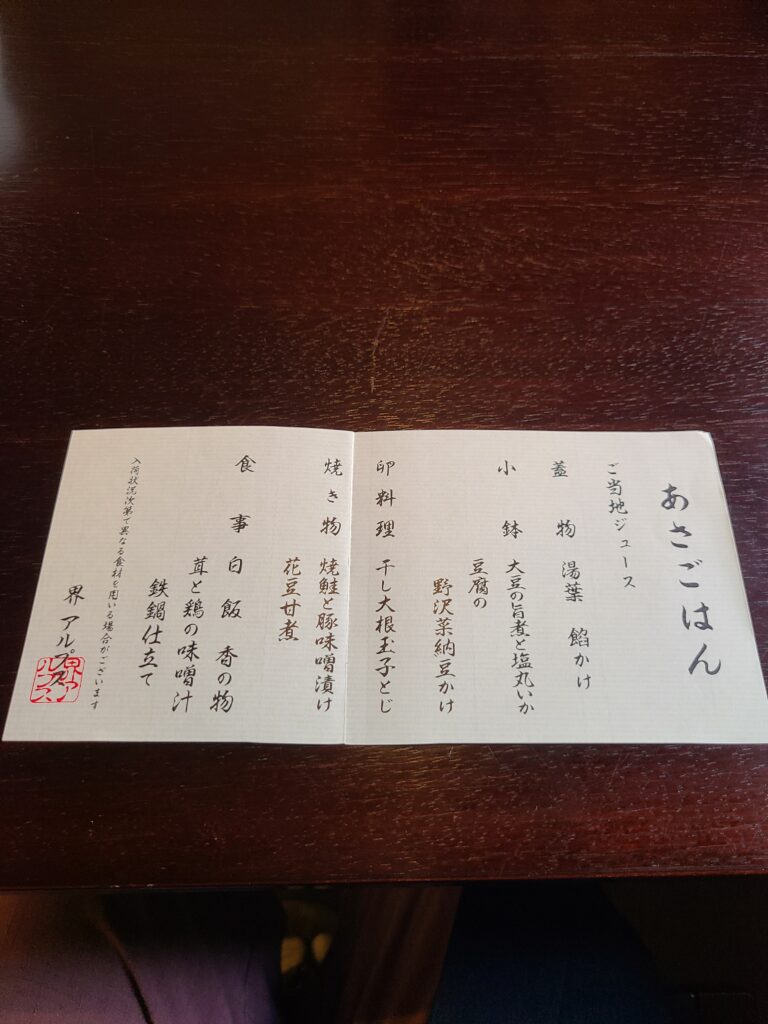 あさごはん
ご当地ジュース
蓋物 湯葉 餡かけ
小鉢 大豆の旨煮と塩丸いか
豆腐の
野沢菜納豆かけ
卵料理 干し大根玉子とじ
焼き物 焼鮭と豚味噌漬け
花豆甘煮
食事 白飯 香の物
茸と鶏の味噌汁
鉄鍋仕立て
入荷状況次第で異なる食材を用いる場合がございます
界 アルプス
界アルプス